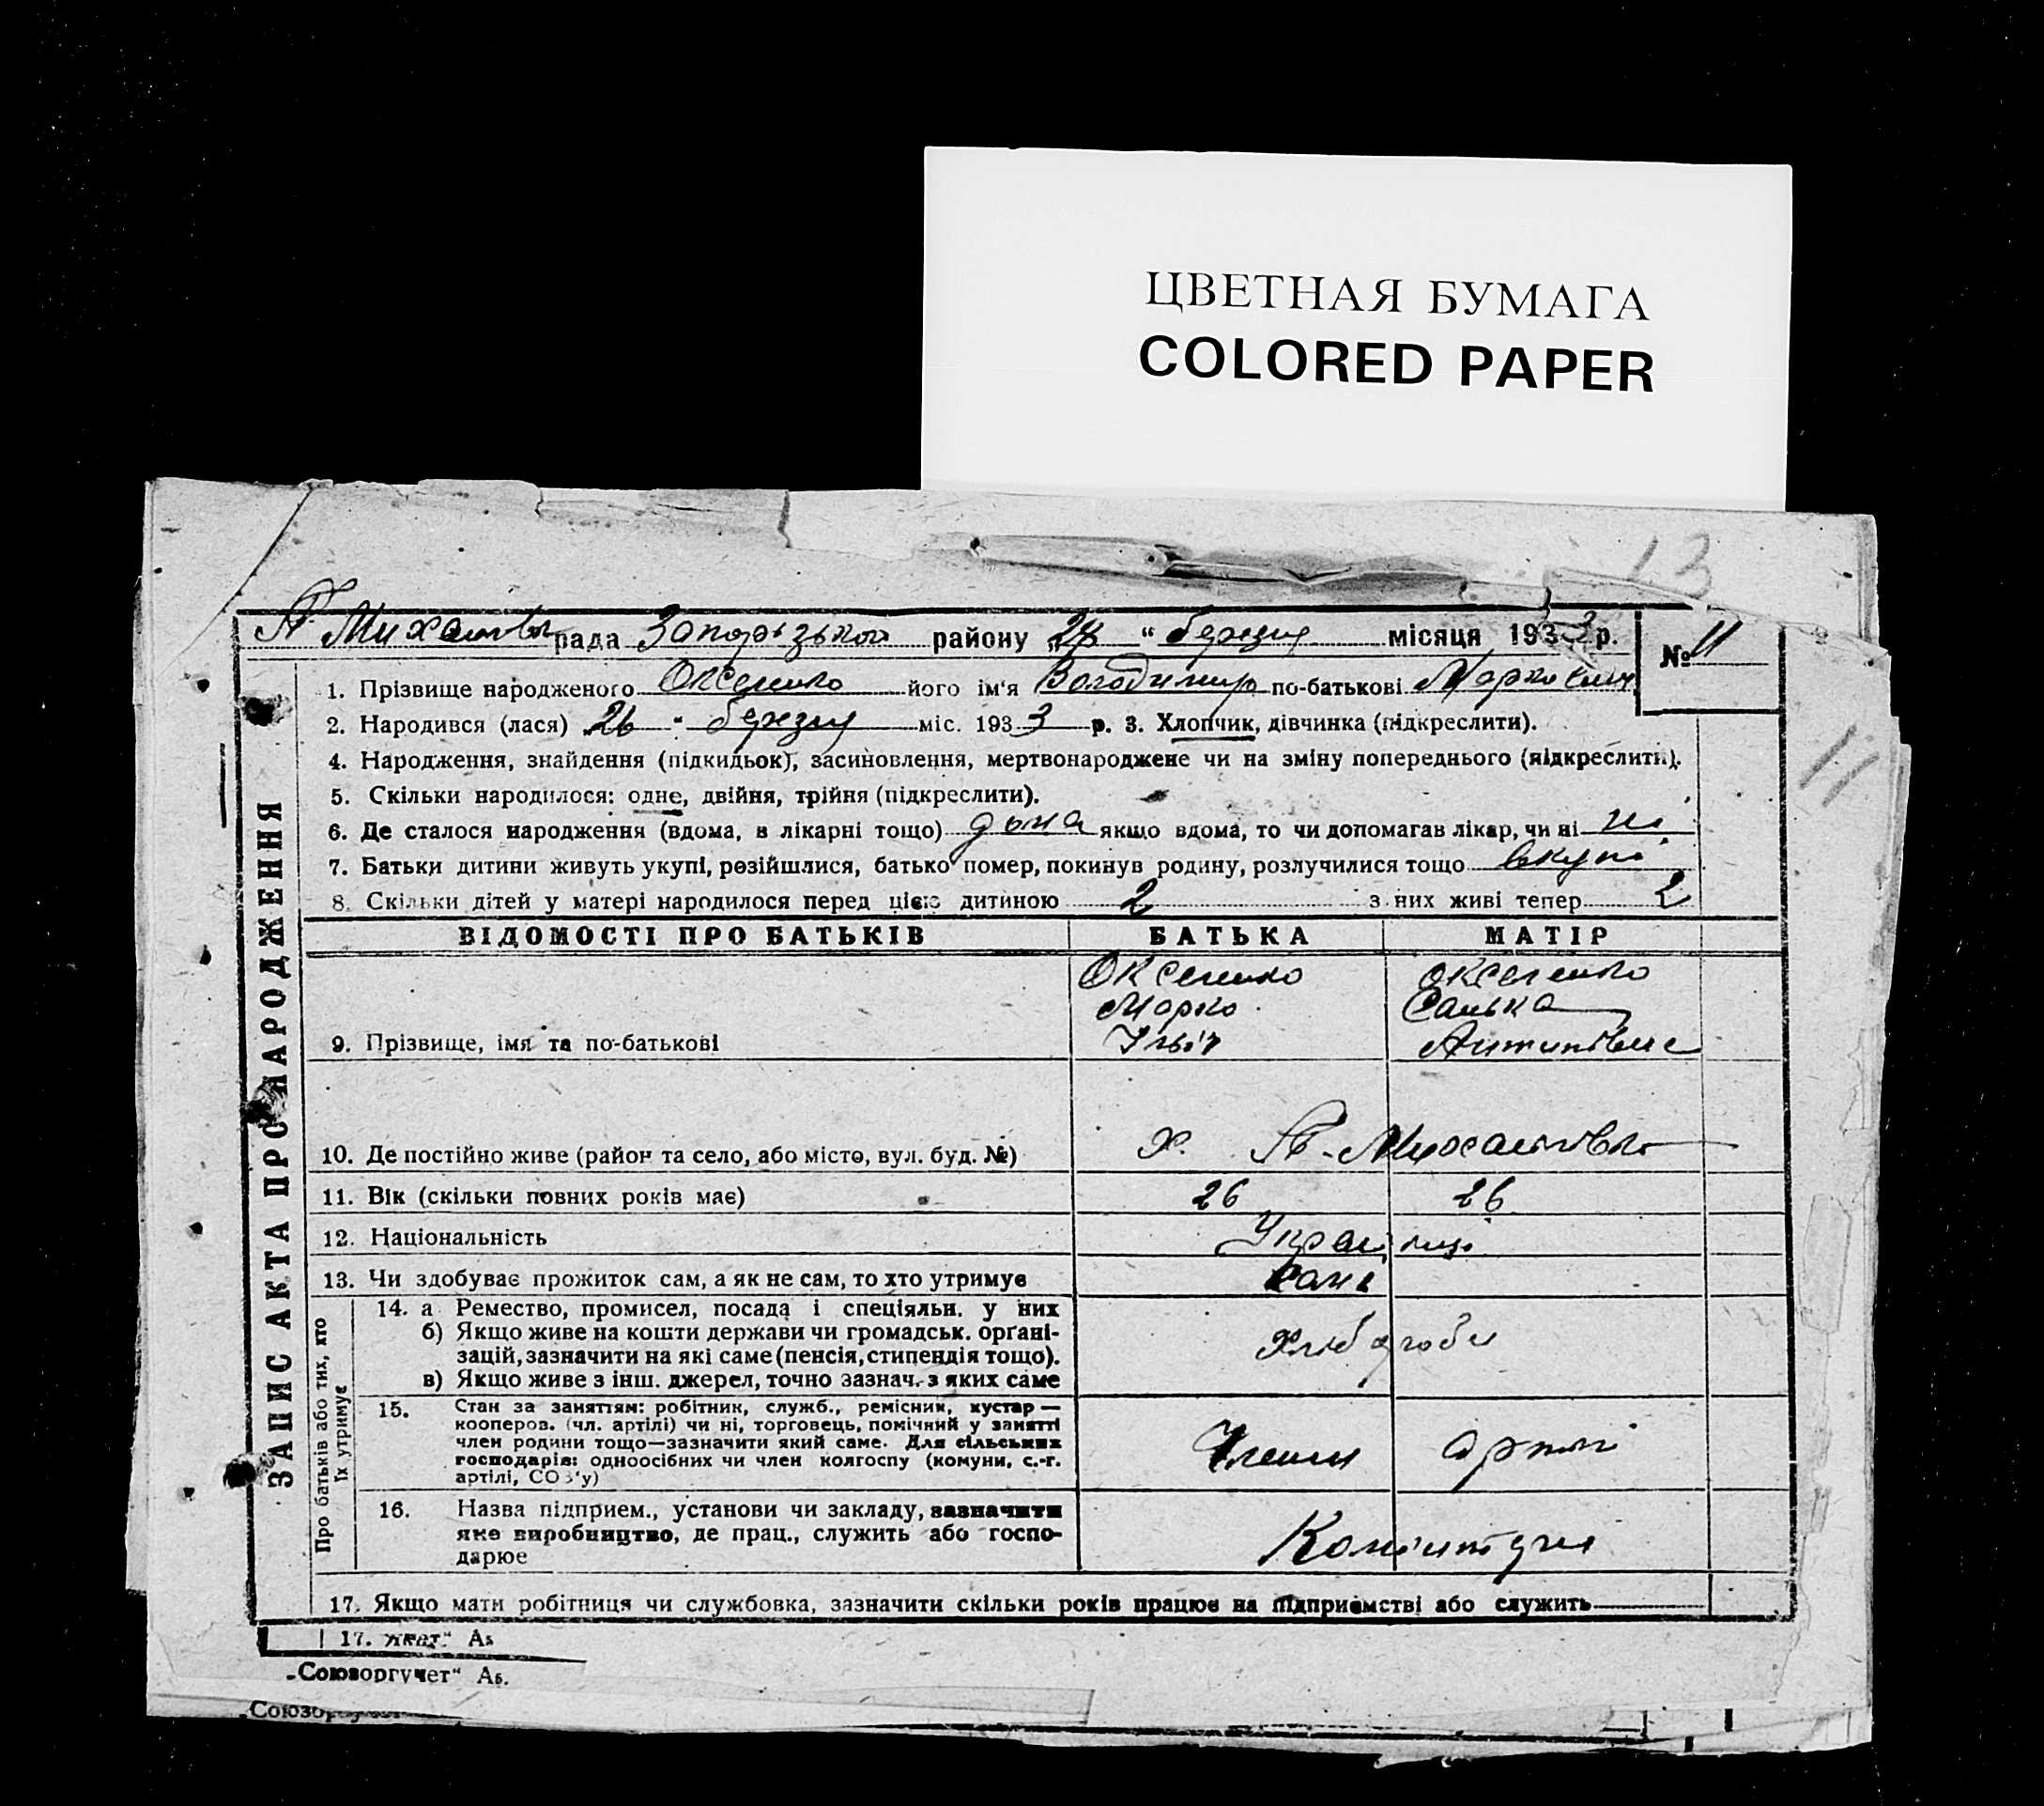 ЦВЕТНАЯ БУМАГА
COLORED PAPER
13
рада району 28 " березня місяця 1933 р. № 11
1. Прізвище народженого Оксененко його ім'я Володимир по-батькові Маркович
2. Народився (лася) 26 " березня міс. 1933 р. 3. Хлопчик, дівчинка (підкреслити).
11
4. Народження, знайдення (підкидьок), засиновлення, мертвонароджене чи на зміну попереднього (підкреслити).
5. Скільки народилося: одне, двійня, трійня (підкреслити).
6. Де сталося народження (вдома, в лікарні тощо) дома якщо вдома, то чи допомагав лікар, чи ні ні
7. Батьки дитини живуть укупі, розійшлися, батько помер, покинув родину, розлучилися тощо вкупі
8. Скільки дітей у матері народилося перед цією дитиною 2 з них живі тепер 2
ЗАПИС АКТА ПРО НАРОДЖЕННЯ
ВІДОМОСТІ ПРО БАТЬКІВ БАТЬКА МАТІР
Оксененко Оксененко
Марко Санька
9. Прізвище, імя та по-батькові Ільіч Антипівна
10. Де постійно живе (район та село, або місто, вул. буд. №) х.
11. Вік (скільки повних років має) 26 26
12. Національність Українці
13. Чи здобуває прожиток сам, а як не сам, то хто утримує сами
Про батьків або тих, хто їх утримує
14. а Ремество, промисел, посада і спеціяльн. у них
б) Якщо живе на кошти держави чи громадськ. орґані-
зацій, зазначити на які саме (пенсія, стипендія тощо). Хлібороби
в) Якщо живе з інш. джерел, точно зазнач. з яких саме
15. Стан за заняттям: робітник, служб., ремісник, кустар —
кооперов. (чл. артілі) чи ні, торговець, помічний у занятті
член родини тощо—зазначити який саме. Для сільських
господарів: одноосібних чи член колгоспу (комуни, с.-г. Члени артілі
артілі, СОЗ'у)
16. Назва підприєм., установи чи закладу, зазначити
яке виробництво, де прац., служить або госпо-
дарює
17. Якщо мати робітниця чи службовка, зазначити скільки років працює на підприємстві або служить
17. Аб
„Союзоргучет“ Аб.